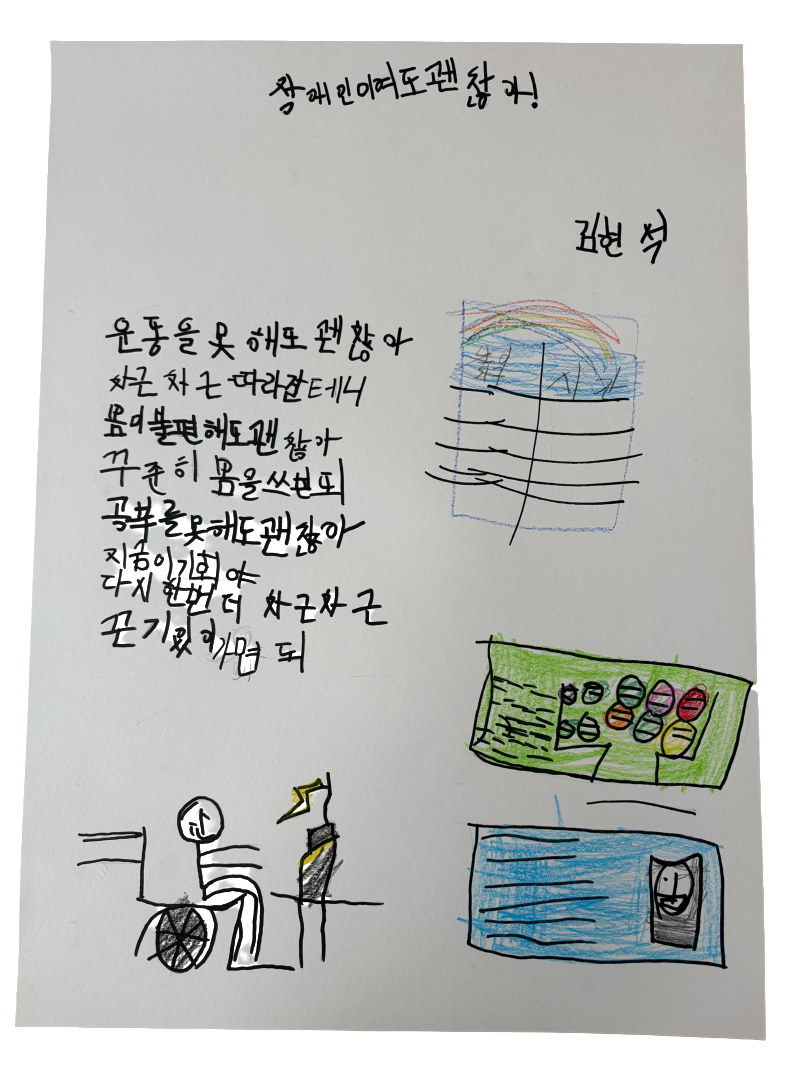 장애인이여도괜찮아!
김현석
운동을 못 해도 괜찮아
차근 차근 따라갈테니
몸이불편해도괜찮아
꾸준히 몸을쓰면되
공부를못해도괜찮아
지금이기회야
다시 한번 더 차근차근
끈기있이가면 되